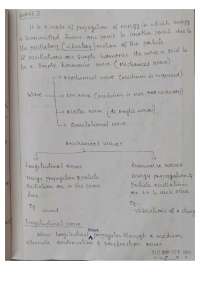 It is a mode of propagation of energy in which energy
is transmitted from one point to another point due to
the oscillatory (vibratory) motion of the particle
If oscillations are simple harmonic the wave is said to
be a simple harmonic wave (Mechanical waves)
Mechanical wave (medium is required)
Wave
EM wave (medium is not
Matter wave
Gravitational wave
Mechanical waves
Longitudinal waves
Transverse waves
Energy propagation & particle
Energy propagation &
oscillation are in the same
Particle oscillations
line.
are to each other
Eg
Eg
sound
vibrations of a string
Longitudinal wave
When longitudinal wave propagates through a medium,